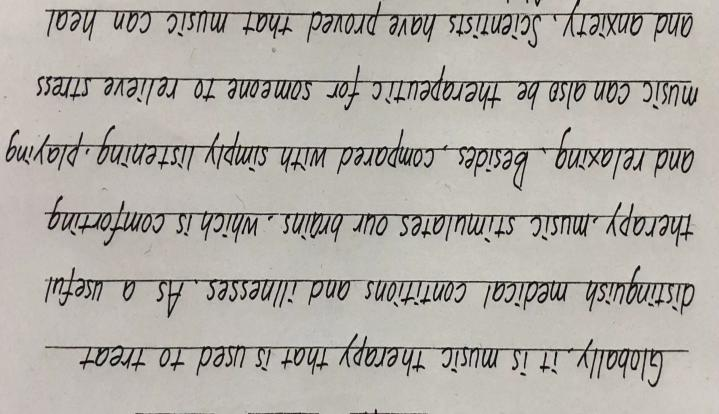 Globally, it is music therapy that is used to treat
distinguish medical contitions and illnesses. As a useful
therapy, music stimulates our brains, which is comforting
and relaxing. Besides, compared with simply listening, playing
music can also be therapeutic for someone to relieve stress
and anxiety. Scientists have proved that music can heal